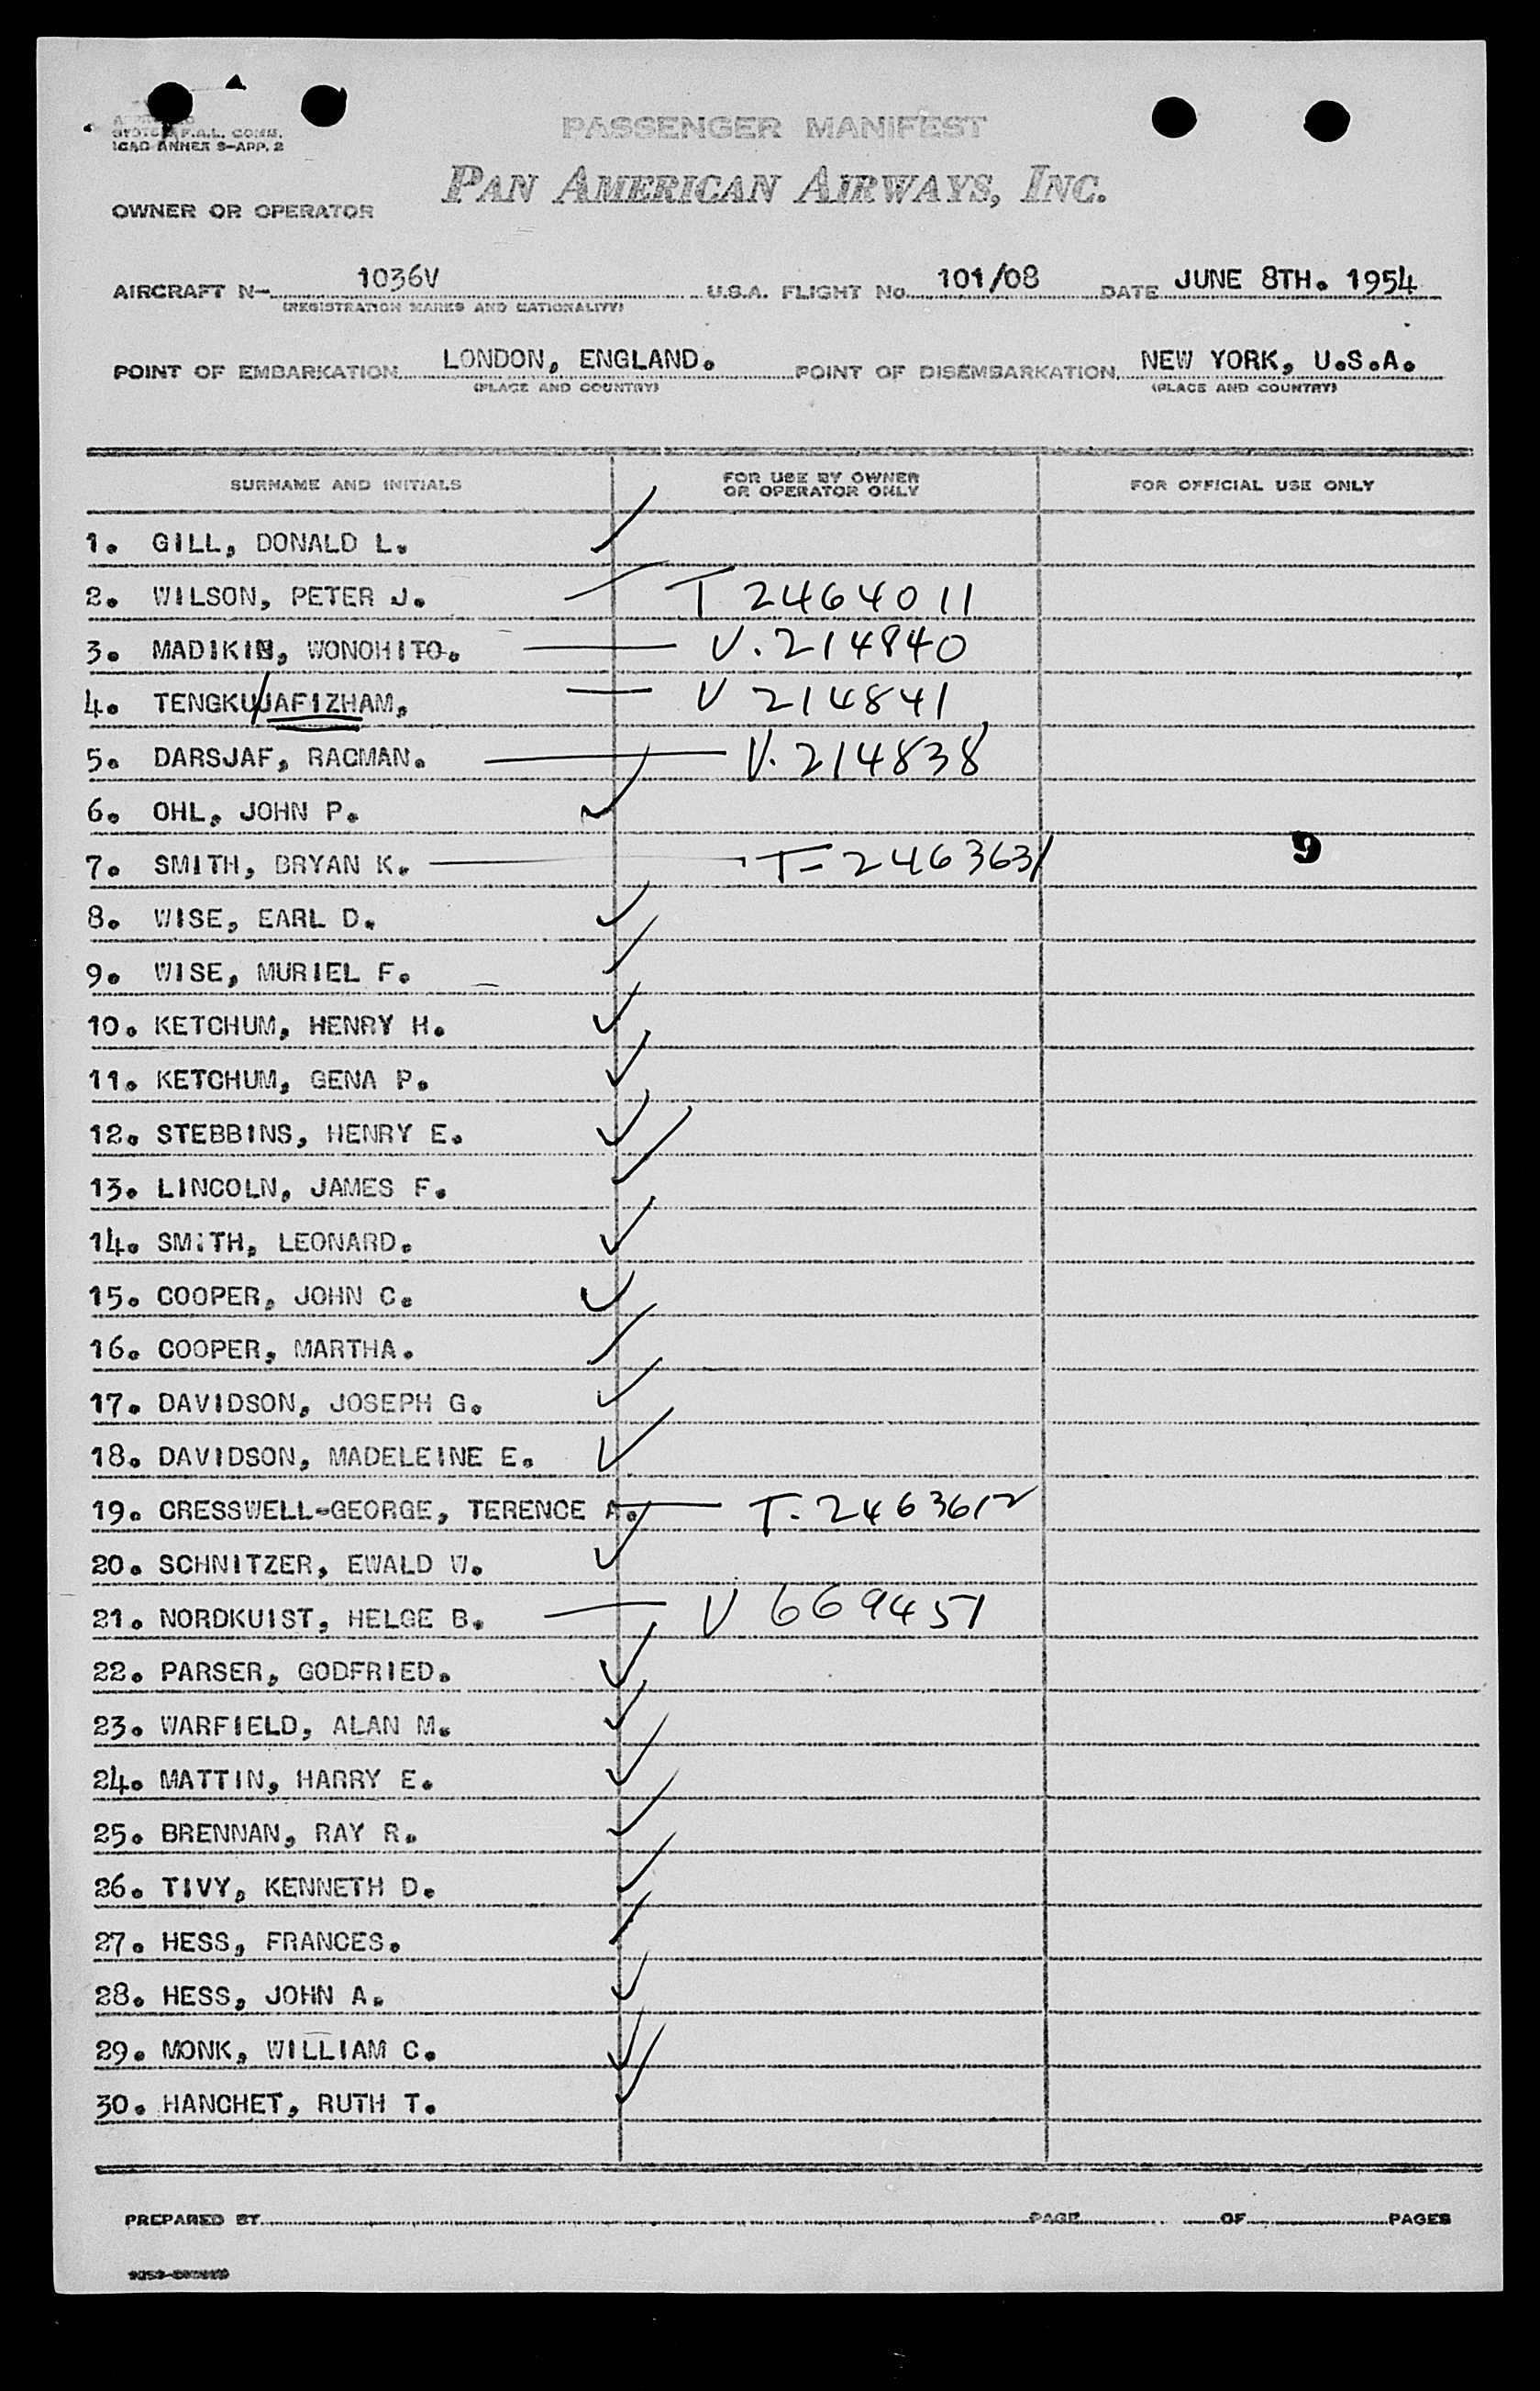 PASSENGER MANIFEST
F.A.L. COMM.
ICAO ANNEX 9-APP. 2
PAN AMERICAN AIRWAYS, INC.
OWNER OR OPERATOR
AIRCRAFT N- 1036V U.S.A. FLIGHT No. 101/08 DATE JUNE 8TH. 1954
(REGISTRATION MARKS AND NATIONALITY)
POINT OF EMBARKATION LONDON, ENGLAND. POINT OF DISEMBARKATION NEW YORK, U.S.A.
(PLACE AND COUNTRY) (PLACE AND COUNTRY)
SURNAME AND INITIALS FOR USE BY OWNER OR OPERATOR ONLY FOR OFFICIAL USE ONLY
1. GILL, DONALD L. ✓
2. WILSON, PETER J. — T 2464011
3. MADIKIN, WONOHITO. — V. 214840
4. TENGKU/JAFIZHAM, — V 214841
5. DARSJAF, RACMAN. — V. 214838
6. OHL, JOHN P. ✓
7. SMITH, BRYAN K. — T- 2463631 9
8. WISE, EARL D. ✓
9. WISE, MURIEL F. ✓
10. KETCHUM, HENRY H. ✓
11. KETCHUM, GENA P. ✓
12. STEBBINS, HENRY E. ✓
13. LINCOLN, JAMES F. ✓
14. SMITH, LEONARD. ✓
15. COOPER, JOHN C. ✓
16. COOPER, MARTHA. ✓
17. DAVIDSON, JOSEPH G. ✓
18. DAVIDSON, MADELEINE E. ✓
19. CRESSWELL-GEORGE, TERENCE A. — T- 2463612
20. SCHNITZER, EWALD W. ✓
21. NORDKUIST, HELGE B. — V 669451
22. PARSER, GODFRIED. ✓
23. WARFIELD, ALAN M. ✓
24. MATTIN, HARRY E. ✓
25. BRENNAN, RAY R. ✓
26. TIVY, KENNETH D. ✓
27. HESS, FRANCES. ✓
28. HESS, JOHN A. ✓
29. MONK, WILLIAM C. ✓
30. HANCHET, RUTH T. ✓
PREPARED BY PAGE OF PAGES